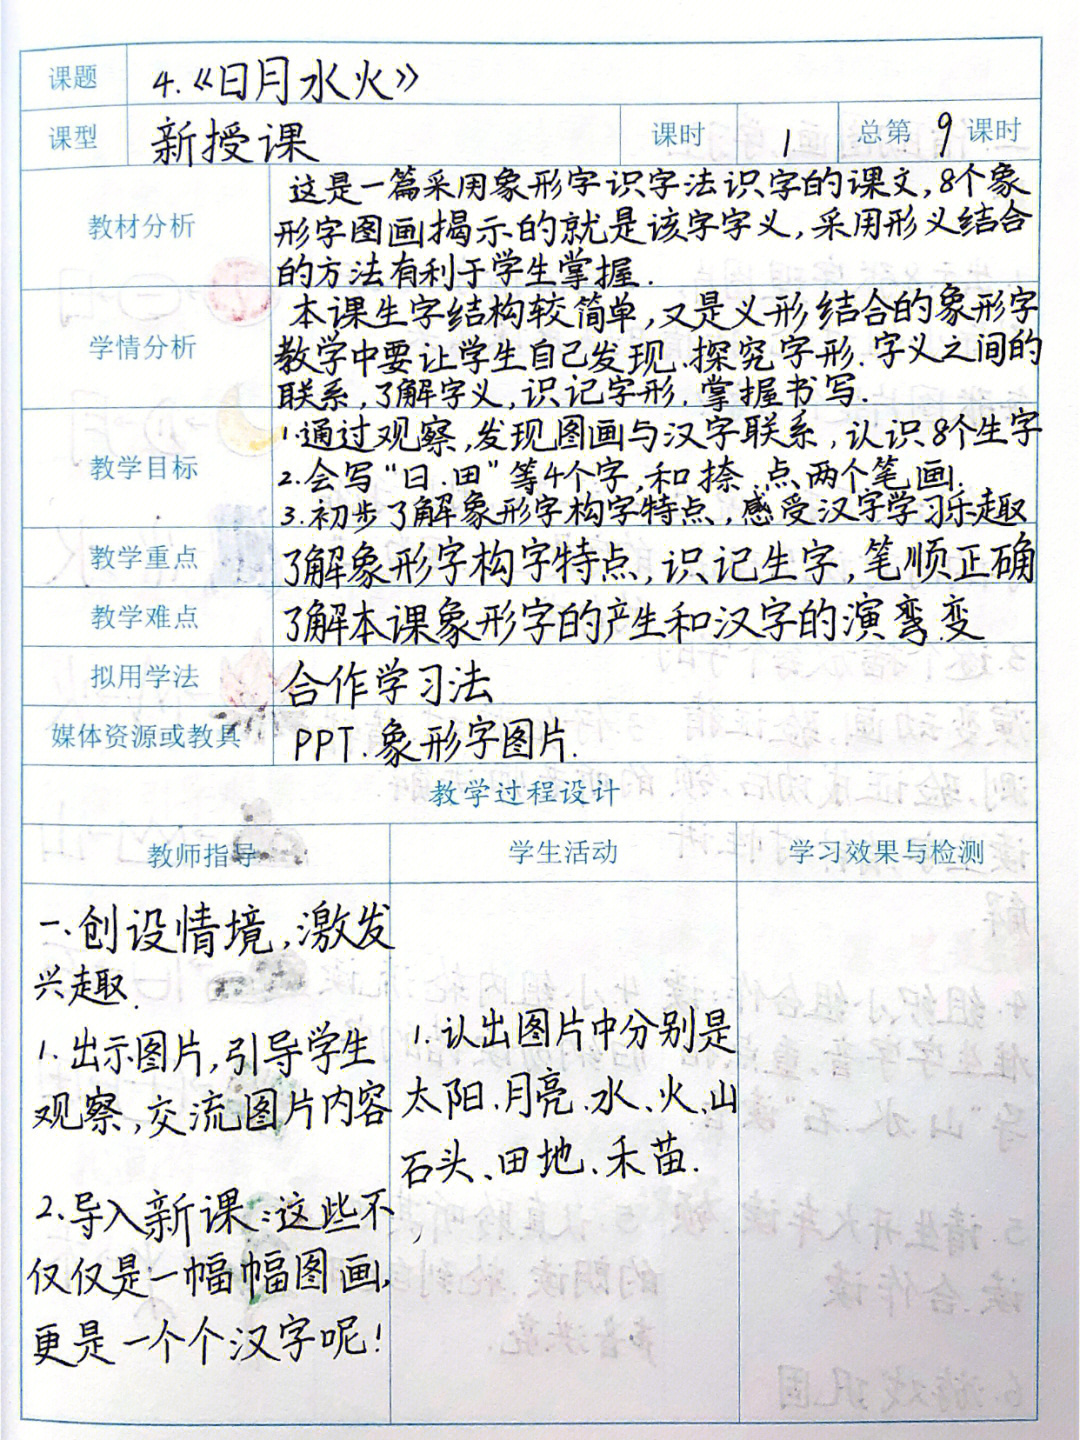 课题 4.《日月水火》
课型 新授课 课时 1 总第 9 课时
教材分析
这是一篇采用象形字识字法识字的课文,8个象
形字图画揭示的就是该字字义,采用形义结合
的方法有利于学生掌握.
学情分析
本课生字结构较简单,又是义形结合的象形字
教学中要让学生自己发现.探究字形.字义之间的
联系,了解字义,识记字形.掌握书写.
教学目标
1.通过观察,发现图画与汉字联系,认识8个生字
2.会写“日.田”等4个字,和捺.点两个笔画.
3.初步了解象形字构字特点,感受汉字学习乐趣
教学重点 了解象形字构字特点,识记生字,笔顺正确
教学难点 了解本课象形字的产生和汉字的演弯变
拟用学法 合作学习法
媒体资源或教具 PPT.象形字图片.
教学过程设计
教师指导 学生活动 学习效果与检测
一.创设情境,激发
兴趣.
1.出示图片,引导学生
观察,交流图片内容
2.导入新课:这些不
仅仅是一幅幅图画,
更是一个个汉字呢!
1.认出图片中分别是
太阳.月亮.水、火.山
石头、田地.禾苗.